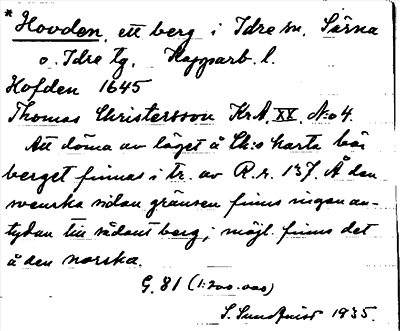 * Hovden, ett berg i Idre sn, Särna
o. Idre tg, Kopparb. l.
Hofden 1645
Thomas Christersson KrA, XX, N:o 4.
Att döma av läget å Ch:s karta bör
berget finnas i tr. av R.r. 137. Å den
svenska sidan gränsen finns ingen an-
tydan till sådant berg; möjl. finns det
å den norska.
G. 81 (1:200.000)
S. Sundqvist 1935.